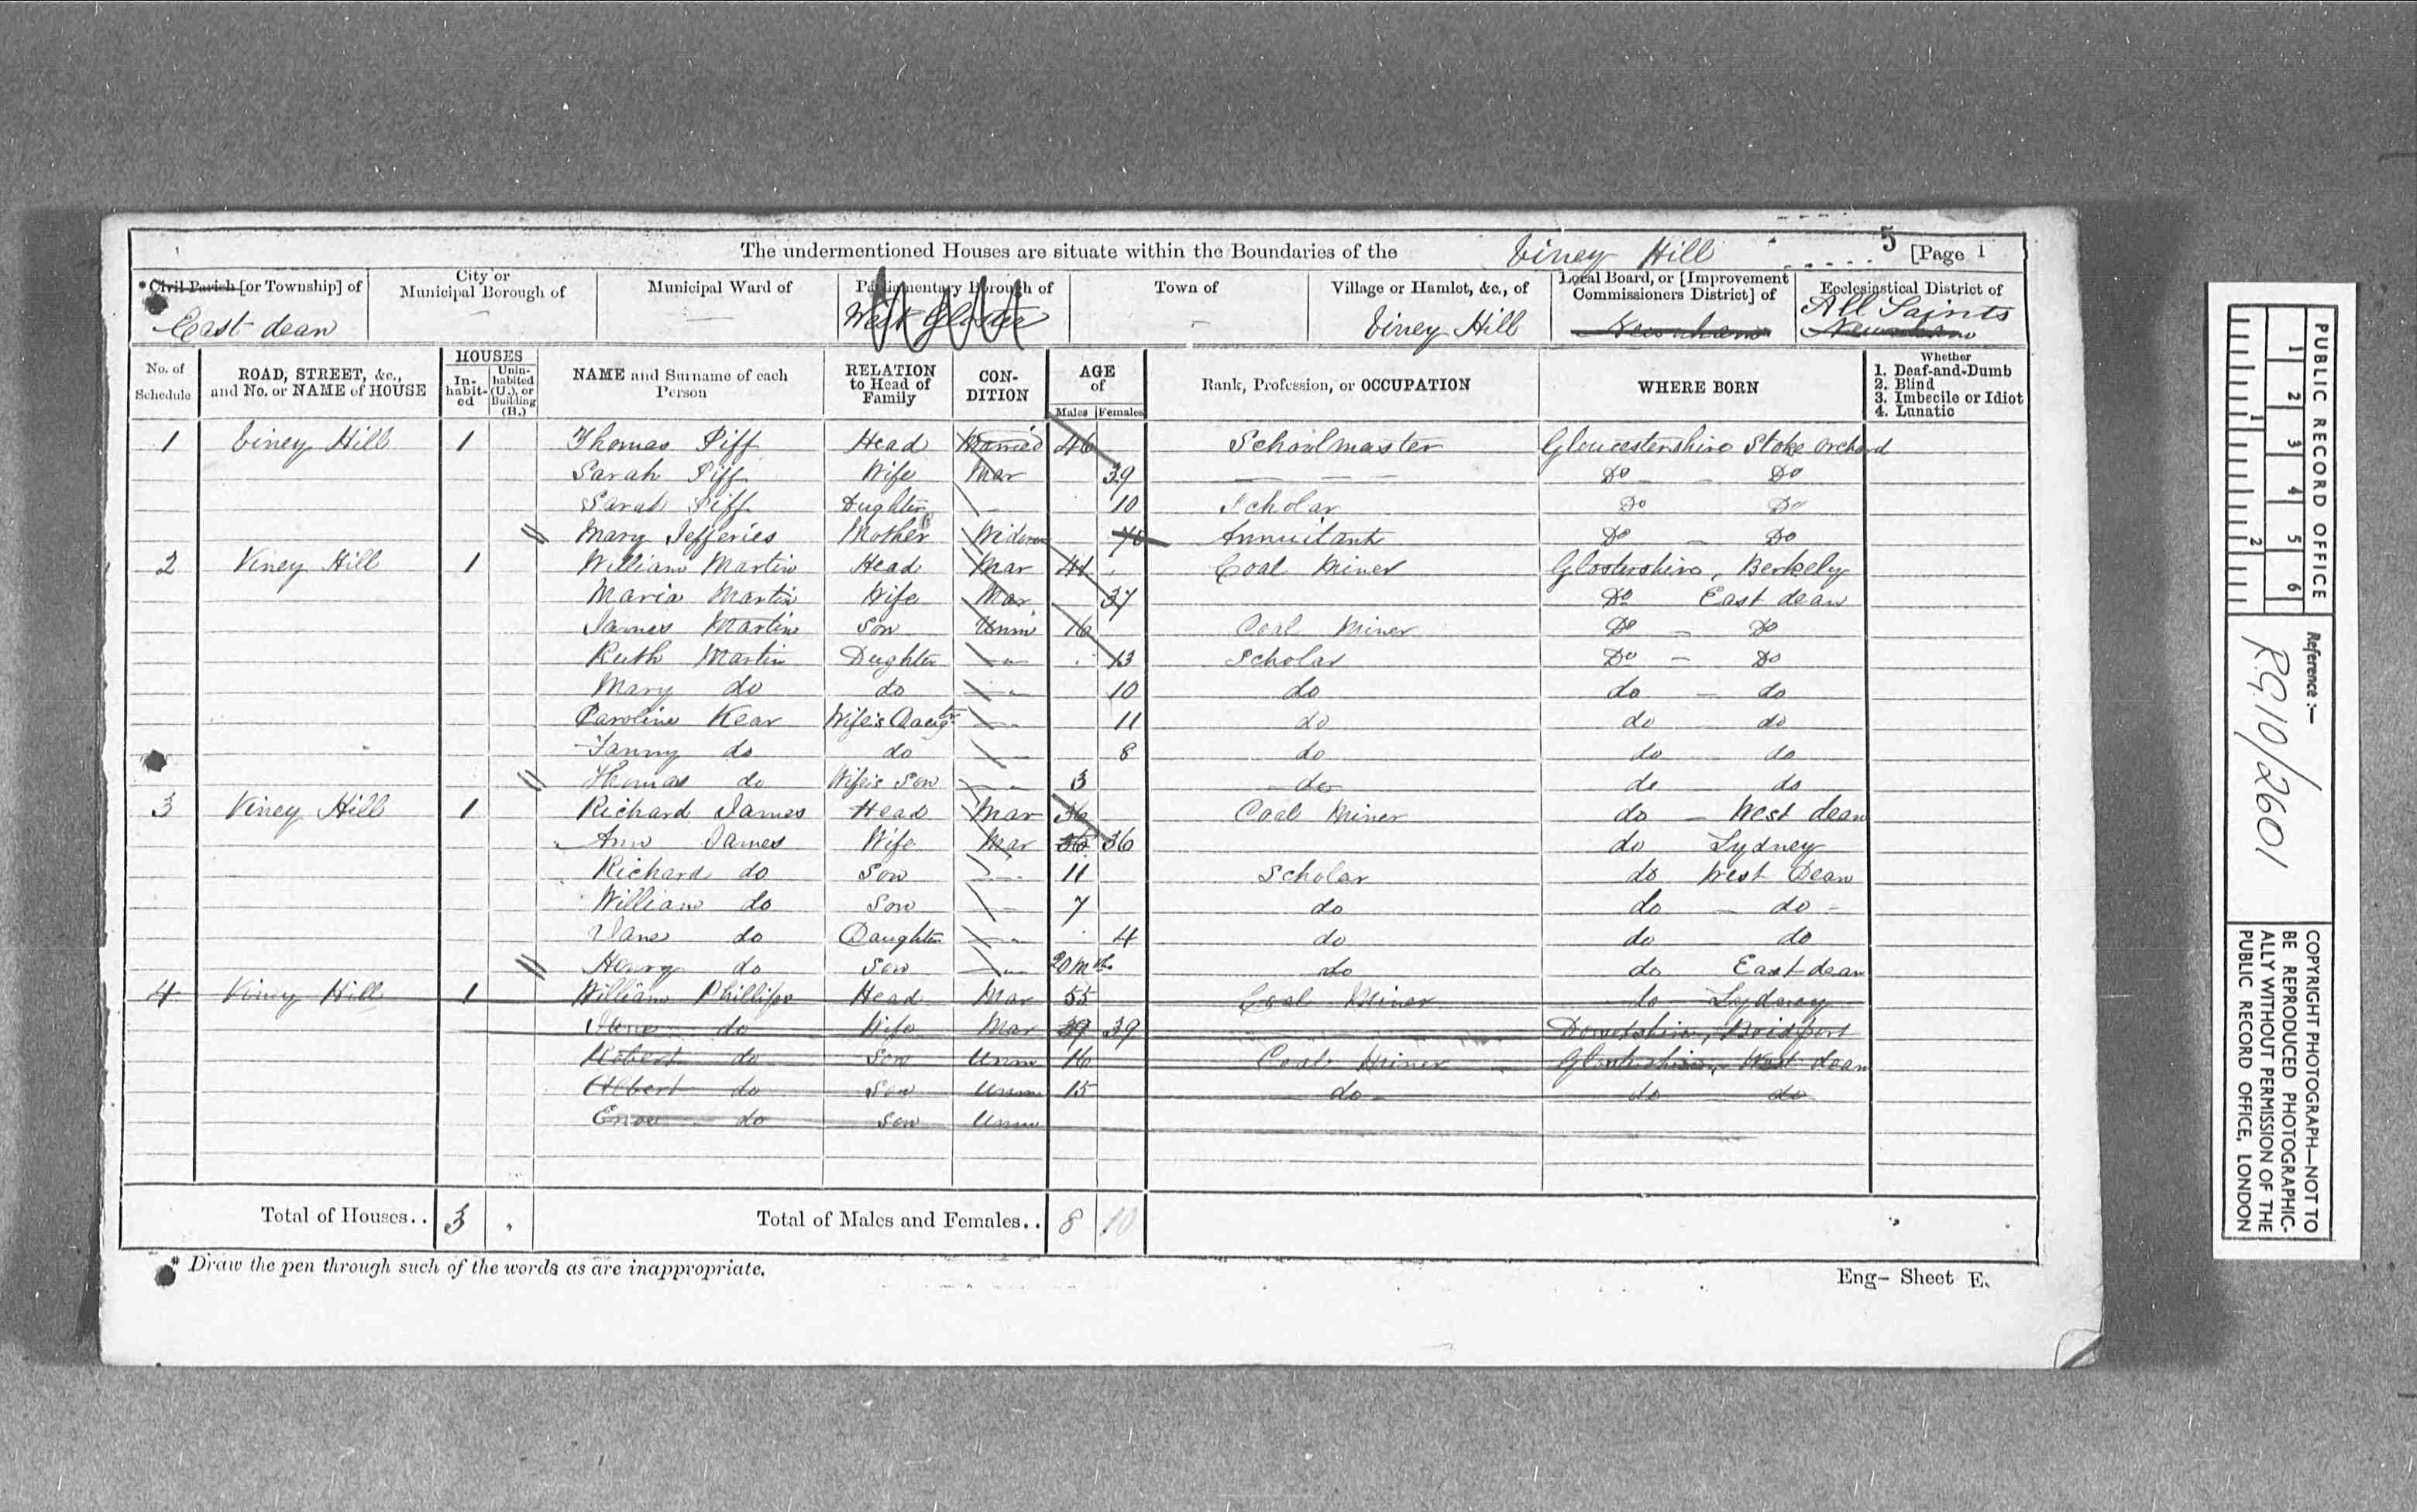 The undermentioned Houses are situate within the Boundaries of the Viney Hill 5 [Page 1
* Civil Parish [or Township] of East dean
City or Municipal Borough of
Municipal Ward of
Parliamentary Borough of West Gloster
Town of
Village or Hamlet, &c., of Viney Hill
Local Board, or [Improvement Commissioners District] of Newnham
Ecclesiastical District of All Saints Newnham
No. of Schedule
ROAD, STREET, &c., and No. or NAME of HOUSE
HOUSES
In-habit-ed
Unin-habited (U.), or Building (B.)
NAME and Surname of each Person
RELATION to Head of Family
CON-DITION
AGE of
Males Females
Rank, Profession, or OCCUPATION
WHERE BORN
Whether
1. Deaf-and-Dumb
2. Blind
3. Imbecile or Idiot
4. Lunatic
1 Viney Hill 1 Thomas Piff Head Married 46 Schoolmaster Gloucestershire Stoke Orchard
Sarah Piff Wife Mar 39 Do Do
Sarah Piff Dughter 10 Scholar Do Do
Mary Jefferies Mother Widow Annuitant Do Do
2 Viney Hill 1 William Martin Head Mar 41 Coal Miner Glostershire, Berkely
Maria Martin Wife Mar 37 Do East dean
James Martin Son Unm 16 Coal Miner Do Do
Ruth Martin Dughter 13 Scholar Do Do
Mary do do 10 do do do
Caroline Kear Wife's Daugtr 11 do do do
Fanny do do 8 do do do
Thomas do Wife's Son 3 do do do
3 Viney Hill 1 Richard James Head Mar 36 Coal Miner do West dean
Ann James Wife Mar 36 36 do Lydney
Richard do Son 11 Scholar do West Dean
William do Son 7 do do do
Jane do Daughter 4 do do do
Henry do Son 20 Mth do do East dean
4 Viney Hill 1 William Phillips Head Mar 55 Coal Miner do Lydney
do Wife Mar 39 39 Dorsetshire, Bridport
Robert do Son Unm 16 Coal Miner Glostershire, West dean
Albert do Son Unm 15 do do do
Enos do Son Unm
Total of Houses.. 3
Total of Males and Females.. 8 10
* Draw the pen through such of the words as are inappropriate.
Eng- Sheet E.
PUBLIC RECORD OFFICE
1 2 3 4 5 6
1 2
Reference:—
R.G.10/2601
COPYRIGHT PHOTOGRAPH—NOT TO
BE REPRODUCED PHOTOGRAPHIC-
ALLY WITHOUT PERMISSION OF THE
PUBLIC RECORD OFFICE, LONDON